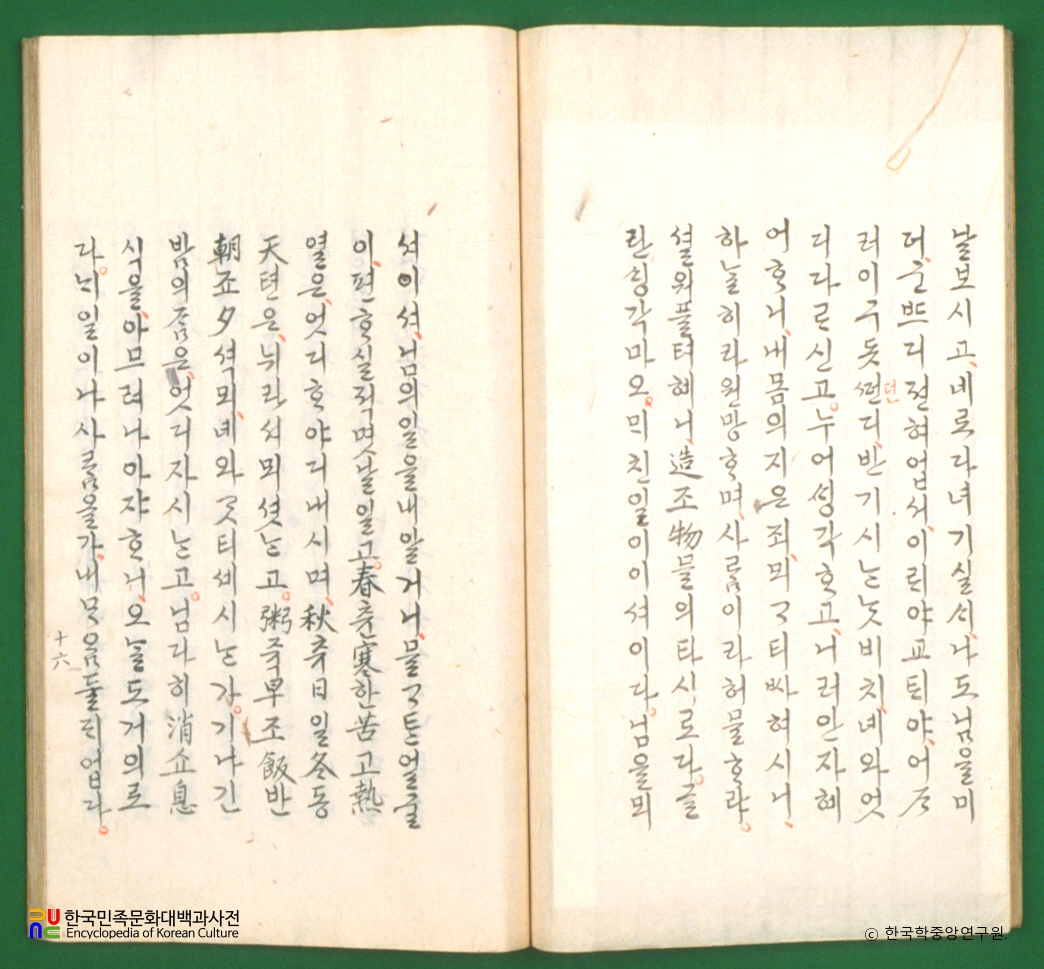 날보시고、녜로다녀기실ᄉᆡ、나도님을미
더、군ᄠᅳ디젼혀업서、이ᄅᆡ야교ᄐᆡ야、어ᄌᆞ
러이구돗ᄯᅥᆫ디、반기시ᄂᆞᆫᄂᆞᆺ비치、녜와엇
뎐
디다ᄅᆞ신고。누어ᄉᆡᆼ각ᄒᆞ고、니러안자혜
어ᄒᆞ니、내몸의지은죄、뫼ᄀᆞ티ᄡᅡ혀시니、
하ᄂᆞᆯ히라원망ᄒᆞ며、사ᄅᆞᆷ이라허믈ᄒᆞ랴。
셜워플텨혜니、造조物믈의타시로다。글
란ᄉᆡᆼ각마오。ᄆᆡ친일이이셔이다。님을뫼
셔이셔、님의일을내알거니、믈ᄀᆞᄐᆞᆫ얼굴
이、편ᄒᆞ실적몃날일고。春츈寒한苦고熱
열은、엇디ᄒᆞ야디내시며、秋츄日일冬동
天텬은、뉘라셔뫼셧ᄂᆞᆫ고。粥쥭早조飯반
朝죠夕셕뫼、녜와ᄀᆞᆺ티셰시ᄂᆞᆫ가。기나긴
밤의ᄌᆞᆷ은、엇디자시ᄂᆞᆫ고。님다히消쇼息
식을、아므려나아쟈ᄒᆞ니、오ᄂᆞᆯ도거의로
다。ᄂᆡ일이나사ᄅᆞᆷ올가、내ᄆᆞᄋᆞᆷ둘ᄃᆡ업다。
十六
한국민족문화대백과사전
Encyclopedia of Korean Culture
ⓒ 한국학중앙연구원.